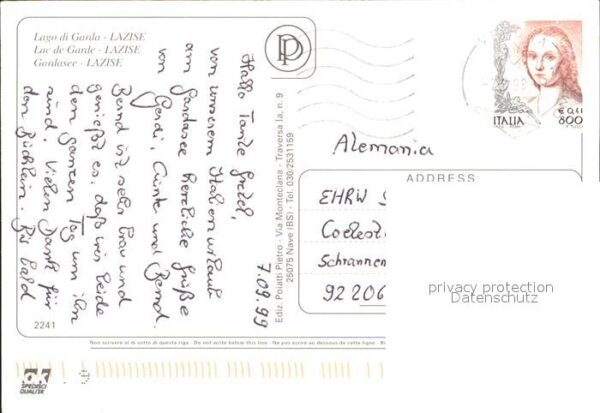 Lago di Garda - LAZISE
Lac de Garde - LAZISE
Gardasee - LAZISE
7.09.99
Hallo Tante Gretel,
von unserem Italienurlaub
am Gardasee herzliche Grüße
von Gerdi, Günte und Bernd.
Bernd ist sehr brav und
genießt es, daß wir beide
den ganzen Tag um ihn
sind. Vielen Dank für
den Büchlein. Bis bald
2241
PD
Ediz. Poiatti Pietro - Via Monteclana - Traversa Ia, n. 9
25075 Nave (BS) - Tel. 030/2531159
ITALIA
€ 0,41
800
Alemania
ADDRESS
EHRW
Coelest
Schrannen
92206
privacy protection
Datenschutz
Non scrivere al di sotto di questa riga - Do not write below this box - Ne pas écrire au dessous de cette ligne
OK
SPEDISCI
QUALITA'